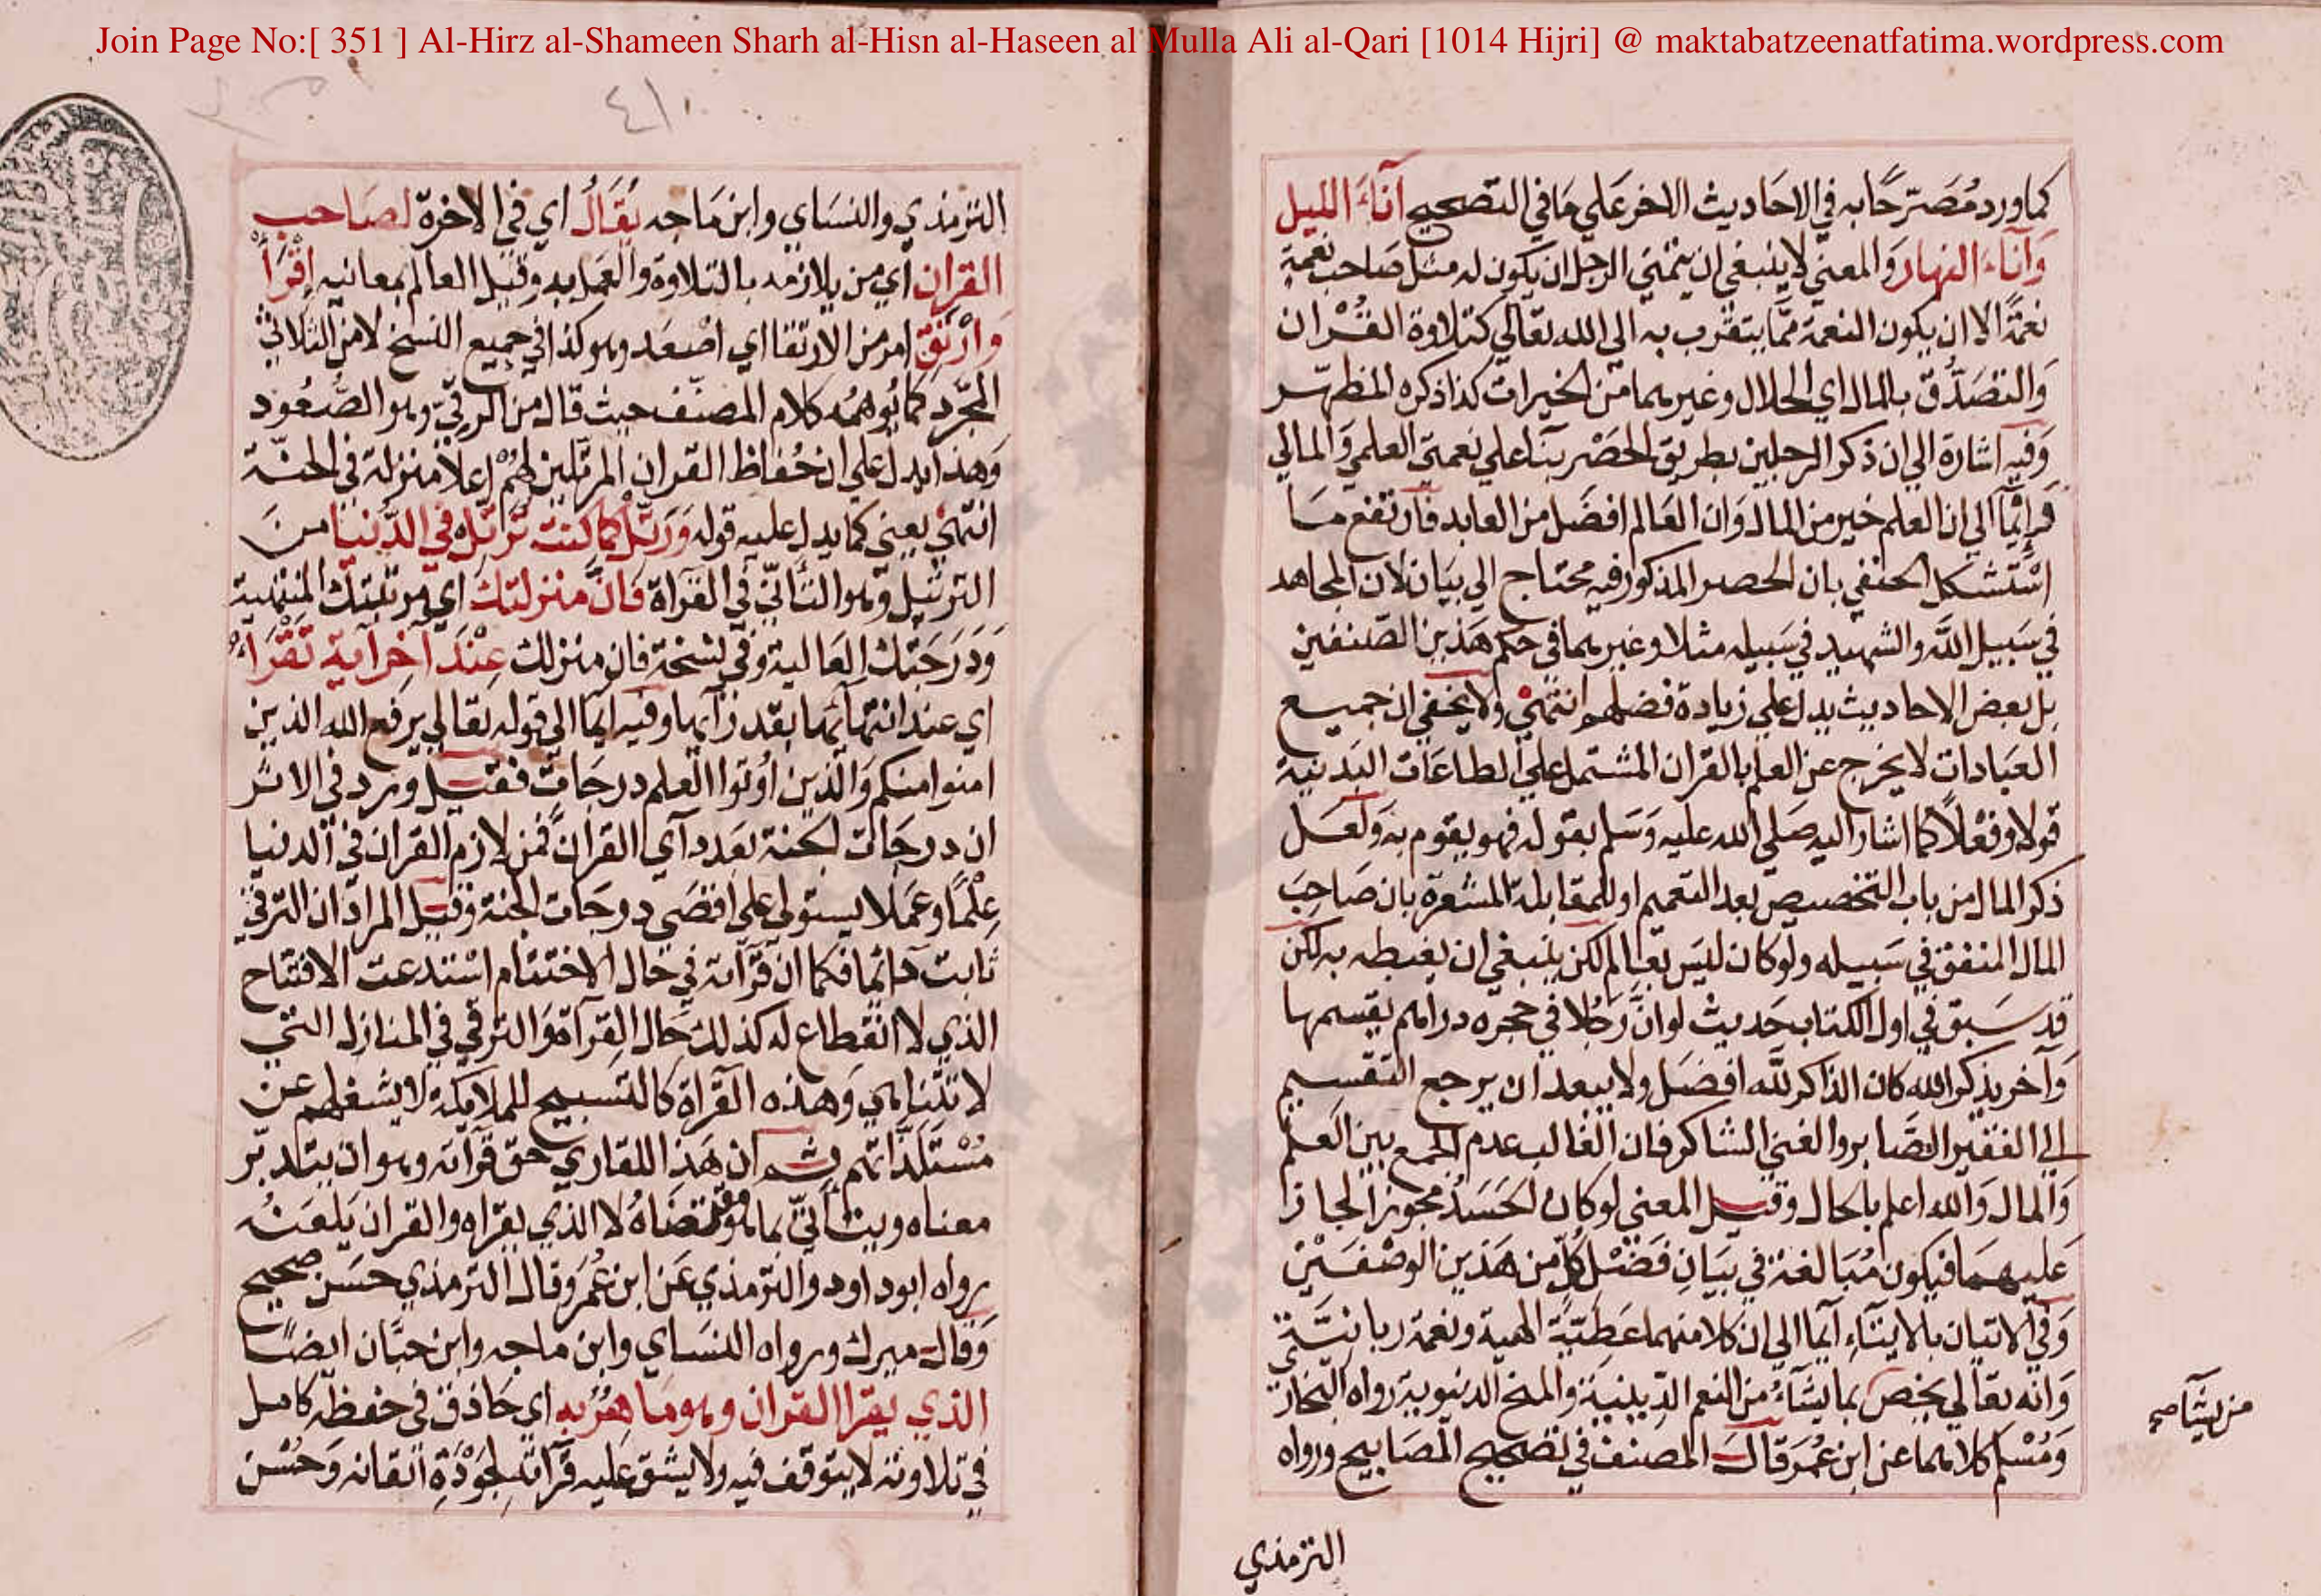 Join Page No:[ 351 ] Al-Hirz al-Shameen Sharh al-Hisn al-Haseen al Mulla Ali al-Qari [1014 Hijri] @ maktabatzeenatfatima.wordpress.com
كما ورد مُصَرّحًا به في الاحَاديث الاخر عَلي مَا في التصحيح آنآءَ الليل
وَآنآءَ النهار وَالمعني لا ينبغي ان يتمني الرجل ان يكون له مثل صَاحب نعمة
نعمةً الا ان يكون النعمة ممّا يتقرب به الي الله تعَالي كتلاوة القُرْان
وَالتصَدُّق بالمال اي الحلال وغيرهما من الخيرات كذا ذكره المظهّر
وَفيه اشارة الي ان ذكر الرجلين بطريق الحصْر بنآ علي نعمتي العلمي وَالمالي
وَايمآ الي ان العلم خير من المال وَان العَالم افضَل من العابد فارتفع مَا
اسْتشكل الحنفي بان الحصر المذكور فيه محتاج الي بيَان لان المجاهد
في سَبيل الله والشهيد في سَبيله مثلا وغيرهما في حكم هَذين الصّنفين
بل بعض الاحاديث يدل علي زيادة فضلهم انتهي ولا يخفي ان جميع
العبَادات لا يخرج عن العلم بالقران المشتمل علي الطاعَات البَدَنية
قولا وفعْلاً كما اشار اليه صَلي الله عليه وَسَلم بقوله فهو يقوم به وَلعَل
ذكر المال من باب التخصيص بعد التعميم او للمقابلة المشعرة بان صَاحِبَ
المال المنفق في سَبيله ولو كان ليسَ بعَالم لكن ينبغي ان يغبطه به لكن
قد سَبق في اول الكتاب حَديث لو انّ رَجُلا في حجره دراهم يقسمها
وَآخر يذكر الله كان الذاكر للّه افضَل ولا يبعد ان يرجع التقسيم
الي الفقير الصَّابر والغني الشاكر فان الغالب عدم الجمع بين العلم
وَالمال وَالله اعلم بالحال وقيل المعني لو كان الحَسَدُ مجوزا لجاز
عَليهمَا فيكون مُبَالغة في بيَان فَضْل كلّ من هَذين الوصْفَيْن
وَفي الاتيان بالايتآء ايمآ الي ان كلا منهما عَطيّة الهية ونعمة ربانيّة
وَانه تعَالي يخص بها يشآءُ من النعم الدينية والمنح الدنيوية رواه البخاري
من يشآ صح
وَمُسْلم كلاهما عن ابن عُمَر قالَ المصنف في تصحيح المصَابيح ورواه
الترمذي
٤١٠
الترمذي والنسَاي وابن مَاجه يُقَالُ اي في الاخرة لصَاحب
القران اي من يلازمه بالتلاوة والعَمل به وقيل العالم بمعانيه اقْرَأْ
وَارْتَقِ امر من الارتقا اي اصْعَد وهو كذا في جميع النسخ لا من الثلاثي
المجّرد كما يُوهمُه كلام المصنّف حيث قال من الرقيّ وهو الصُّعُود
وَهذا يدل علي ان حُفاظ القران المرتلين لهُمْ اعلا منزلة في الجنّة
انتهي يعني كما يدل عليه قوله وَرَتّلْ كما كنت تُرَتّل في الدُّنيا من
الترتيل وهو التأنّي في القرآة فَانّ منزلتك اي مرتبتك المنتهية
وَدَرَجَتك العَالية وفي نسخة فان منزلك عِنْدَ آخر آية تقرَأُ
اي عند انتهآئها بقدر آيها وفيه ايمآ الي قوله تعَالي يرفع الله الذين
امنوا منكم وَالذين اُوتوا العلم درجَات فقيل ورد في الاثر
ان درجَات الجنة بعَدد آي القرآن فمن لازم القرآن في الدنيا
عِلْمًا وعَمَلا يستولي علي اقصَي درجَات الجنة وقيل المراد ان الترقي
ثابت دائما فكما ان قرآته في حَال الاختتام استدعت الافتتاح
الذي لا انقطاع له كذلك حَال القرآة وَالترقي في المنازل التي
لا تتناهي وَهذه القرآة كالتسبيح للملايكة لا يشغلهم عن
مُسْتَلذّاتهم ثم ان هَذا للقاري حق قرآته وهو ان يتدبّر
معناه ويتأتّي بما هو مقتضَاهُ لا الذي يقراه والقران يَلعَنُه
رواه ابو داود والترمذي عَن ابن عُمَر وَقال الترمذي حسَن صحيح
وَقال ميرك ورواه النسَاي وابن ماجه وابن حبَّان ايضًا
الذي يقرا القران وهو مَاهرُ به اي حَاذق في حفظه كامل
في تلاوته لا يتوقف فيه ولا يشق عَليه قرآته لجَوْدَة اتقانه وَحُسْن